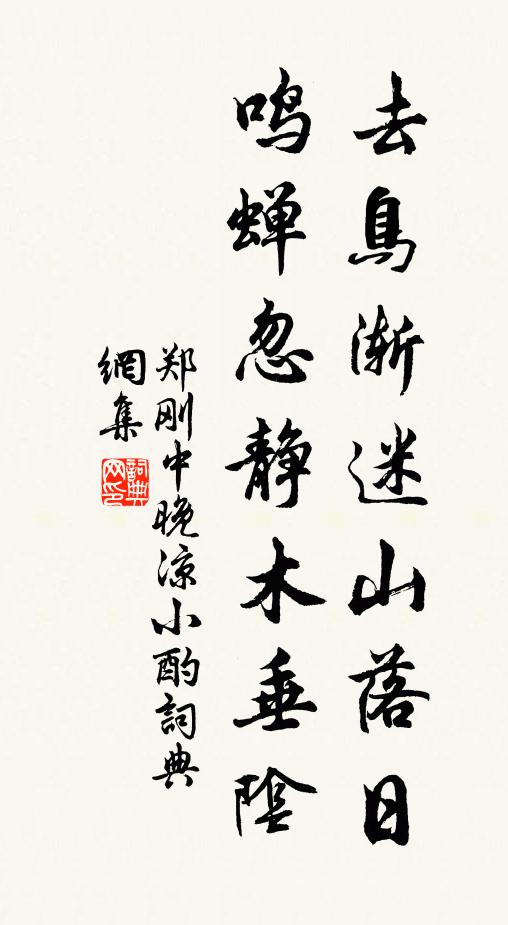 去鳥渐迷山落日
鸣蝉忽静木垂陰
郑刚中晚凉小酌詞典
網集
詞典
网印